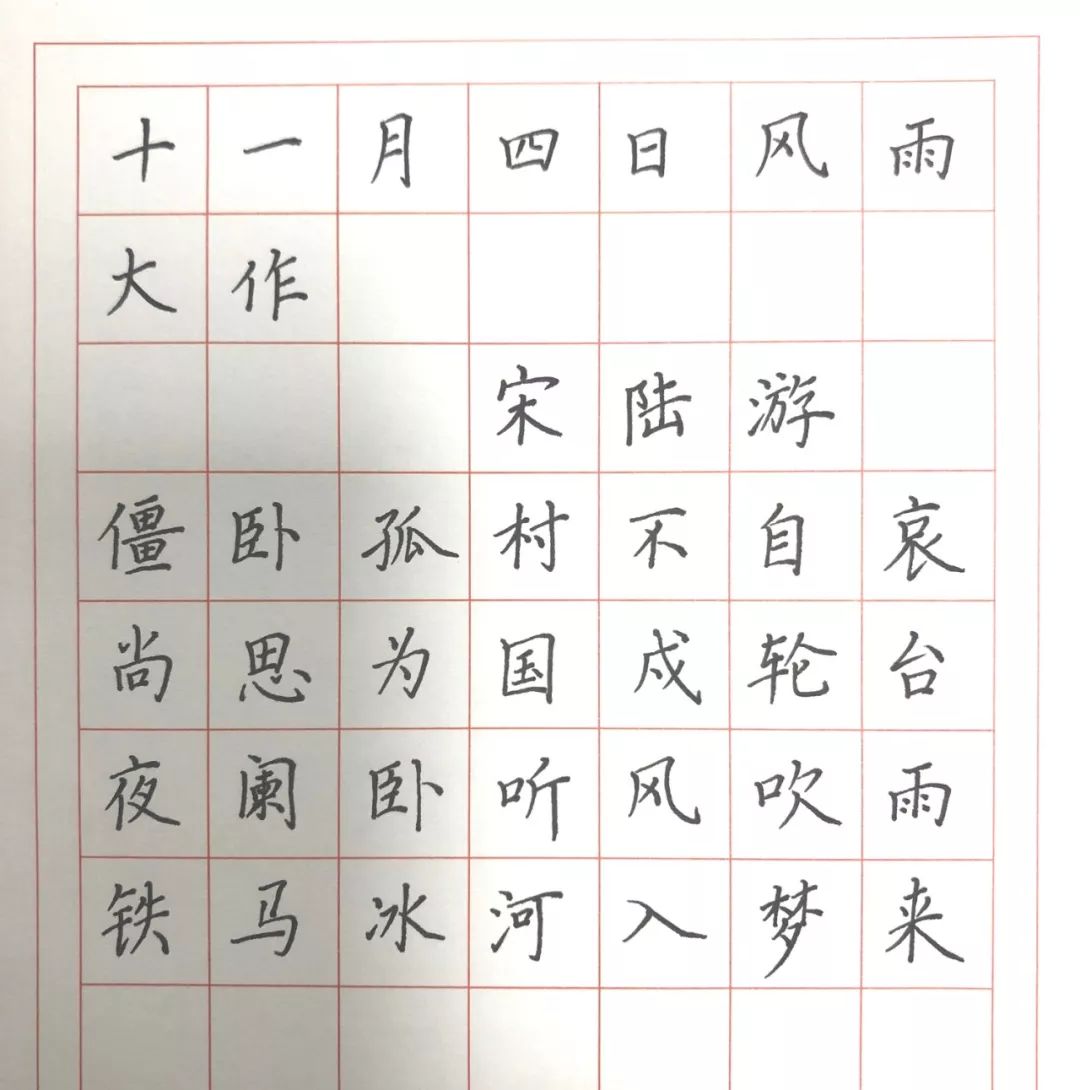 十一月四日风雨
大作
宋陆游
僵卧孤村不自哀
尚思为国戍轮台
夜阑卧听风吹雨
铁马冰河入梦来